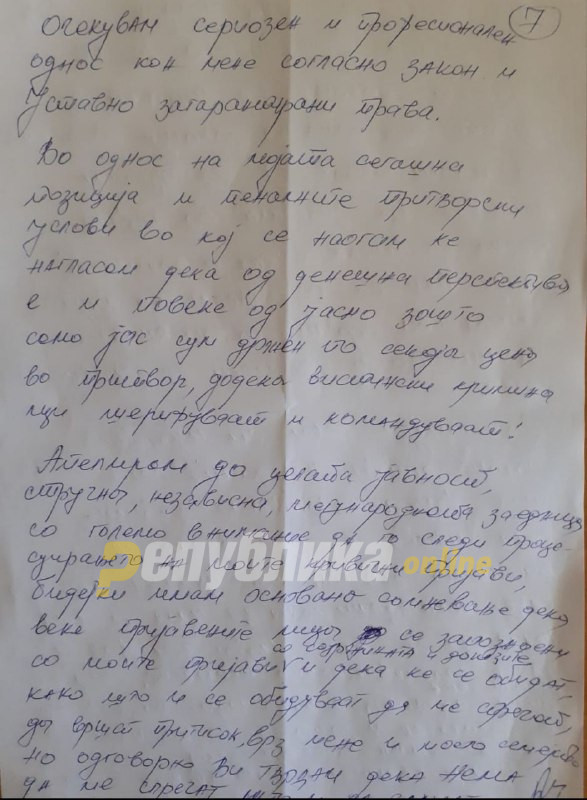 7
Очекувам сериозен и професионален
однос кон мене согласно закон и
Уставно загарантирани права.
Во однос на мојата сегашна
позиција и пеналните притворски
услови во кој се наоѓам ќе
нагласам дека од денешна перспектива
е и повеќе од јасно зошто
само јас сум држен по секоја цена
во притвор, додека вистински кримина
лци шерифуваат и командуваат!
Апелирам до целата јавност,
стручна, независна, меѓународната заедница
со големо внимание да го следи проце-
суирањето на моите кривични пријави,
Република online
бидејќи имам основано сомневање дека
веќе пријавените лица се запознаени
со содржината и доказите
со моите пријави и дека ќе се обидат,
како што и се обидуваат да ме спречат,
да вршат притисок врз мене и моето семејство
но одговорно Ви тврдам дека нема
да ме спречат